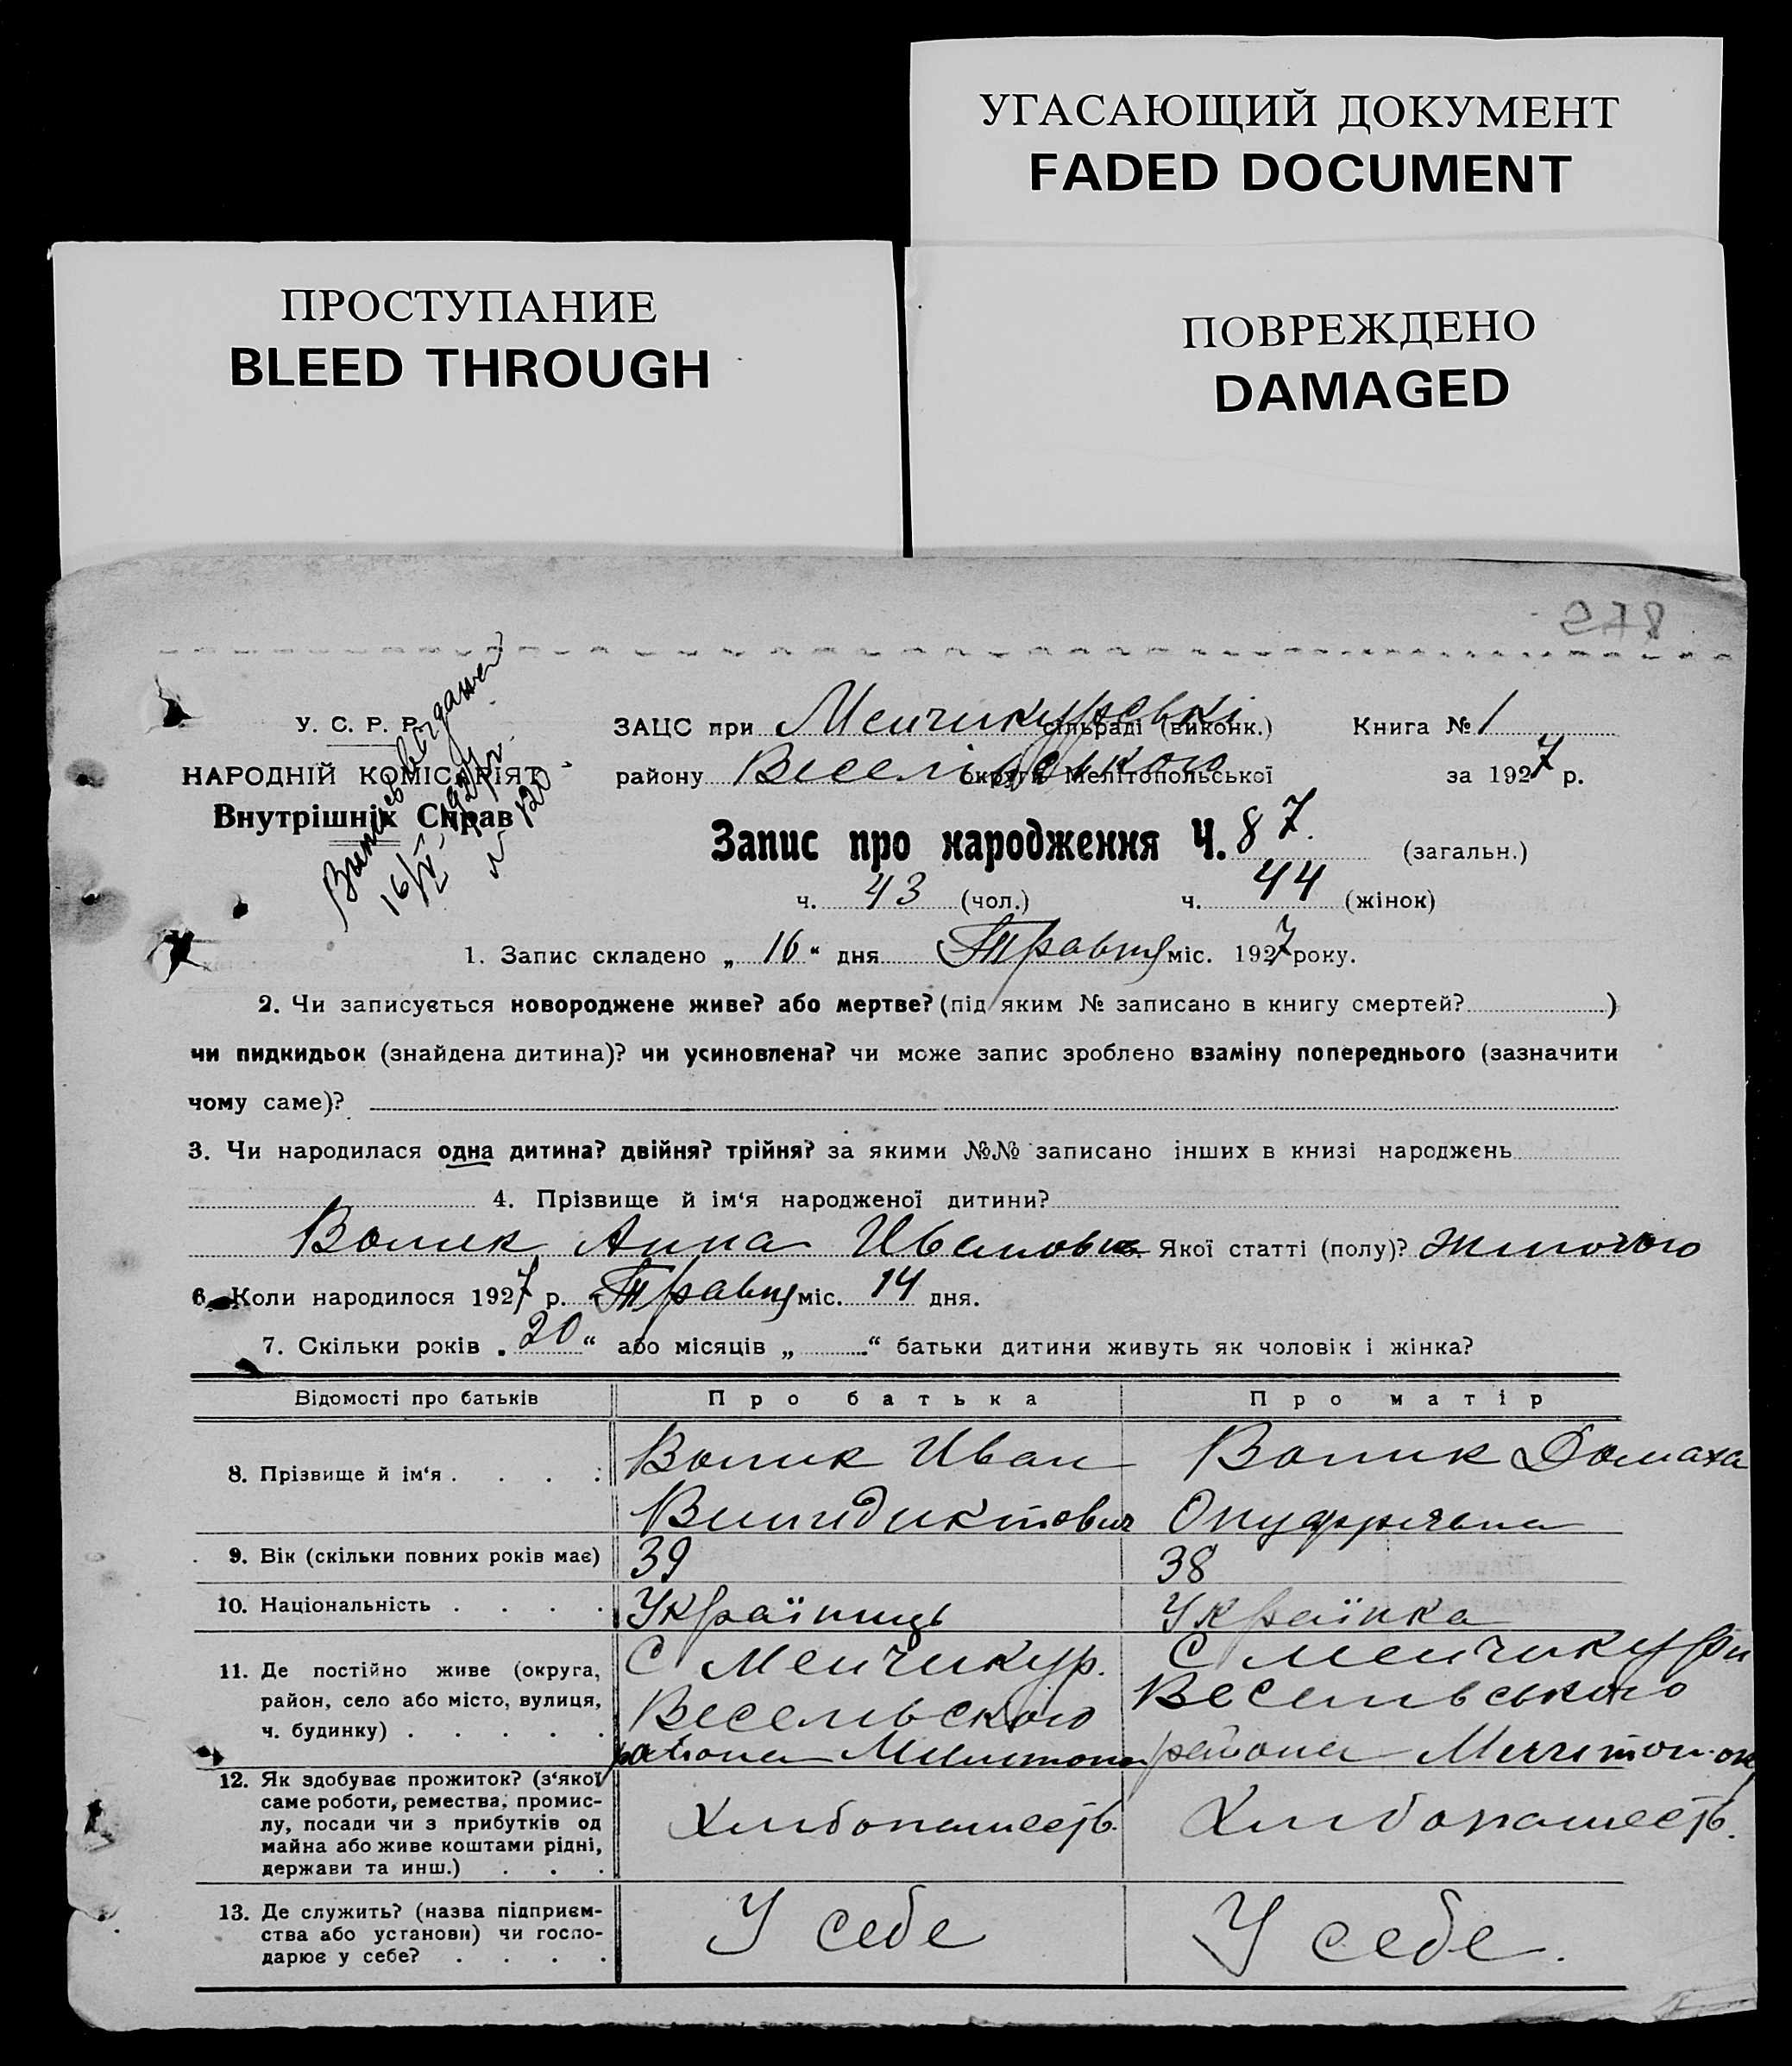 УГАСАЮЩИЙ ДОКУМЕНТ
FADED DOCUMENT
ПРОСТУПАНИЕ
BLEED THROUGH
ПОВРЕЖДЕНО
DAMAGED
278
У. С. Р. Р.
НАРОДНІЙ КОМІСАРІЯТ
Внутрішніх Справ
16/V-1927 р.
№ 120
ЗАЦС при Менчикурській сільраді (виконк.) Книга № 1
району Веселівського округи Мелітопольської за 1927 р.
Запис про народження Ч. 87. (загальн.)
ч. 43 (чол.) ч. 44 (жінок)
1. Запис складено „ 16 “ дня Травня міс. 1927 року.
2. Чи записується новороджене живе? або мертве? (під яким № записано в книгу смертей? )
чи пидкидьок (знайдена дитина)? чи усиновлена? чи може запис зроблено взаміну попереднього (зазначити
чому саме)?
3. Чи народилася одна дитина? двійня? трійня? за якими №№ записано інших в книзі народжень
4. Прізвище й ім‘я народженої дитини?
Волик Анна Ивановна Якої статті (полу)? жиночого
6. Коли народилося 1927 р. Травня міс. 14 дня.
7. Скільки років „ 20 “ або місяців „ “ батьки дитини живуть як чоловік і жінка?
Відомості про батьків Про батька Про матір
8. Прізвище й ім‘я Волик Иван Волик Домаха
Винидиктович Онуфриевна
9. Вік (скільки повних років має) 39 38
10. Національність Українець Українка
11. Де постійно живе (округа, С Менчикур. С Менчикури
район, село або місто, вулиця, Весельвского Весельвського
ч. будинку) района Мелитопол района Мелитоп. ок
12. Як здобуває прожиток? (з‘якої
саме роботи, ремества, промис-
лу, посади чи з прибутків од Хлибопашеств. Хлибопашеств.
майна або живе коштами рідні,
держави та инш.)
13. Де служить? (назва підприєм- У себе У себе.
ства або установи) чи госпо-
дарює у себе?